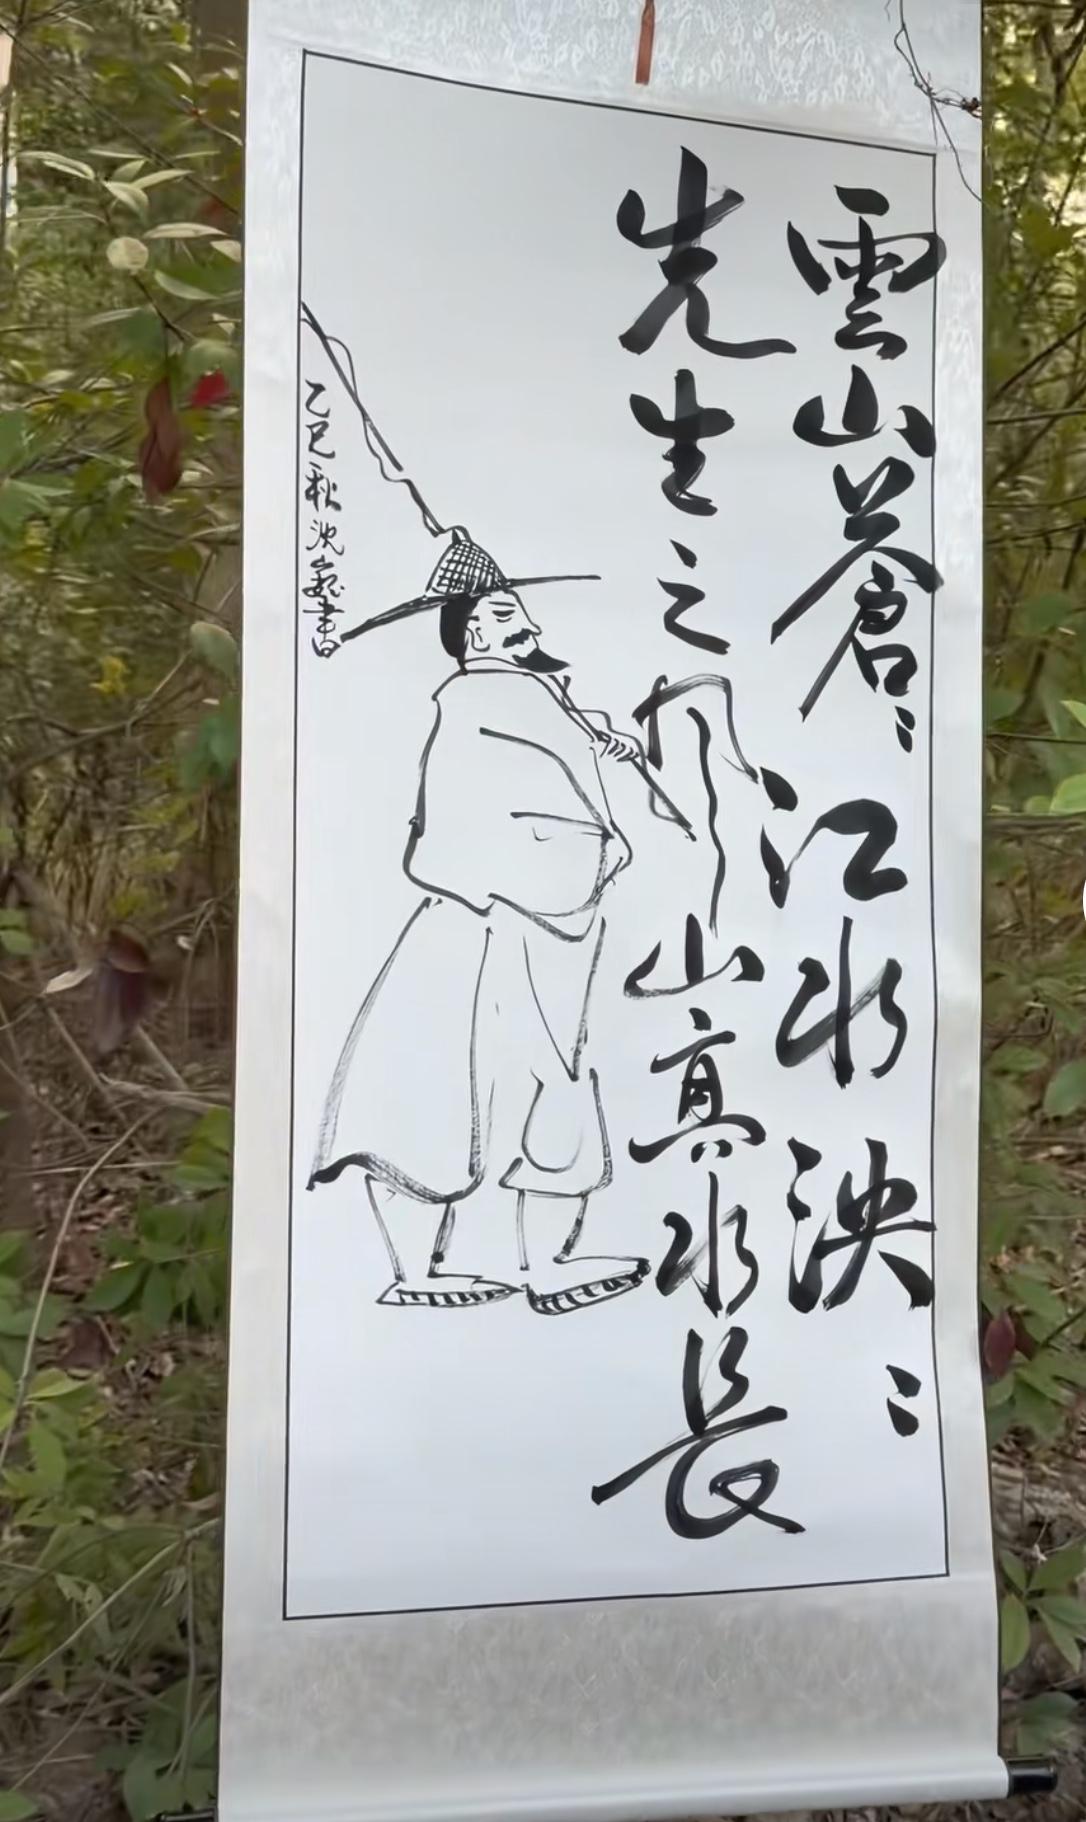 雲山蒼〻江水泱〻
先生之風山高水長
乙巳秋沈書